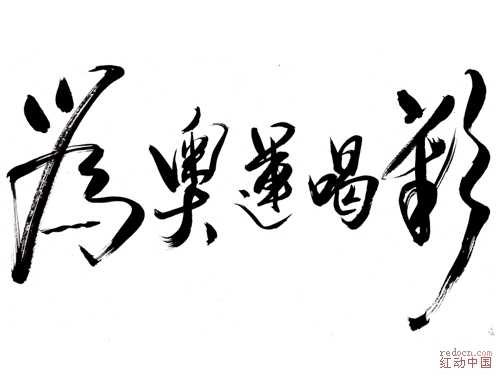 為奧運喝彩
redocn.com
红动中国